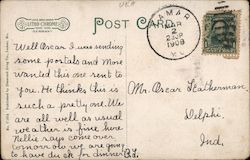 LITHO-CHROME
GERMANY
POST CARD
LAMAR
MAR
2
2 30 P
1908
Well Oscar I was sending
some postals and More
wanted this one sent to
you. He thinks this is
such a pretty one. We
are all well as usual
weather is fine here.
Nellie rays come over
tomorrow we are going
to have duck for dinner.
Mr Oscar Leatherman,
Delphi,
Ind.